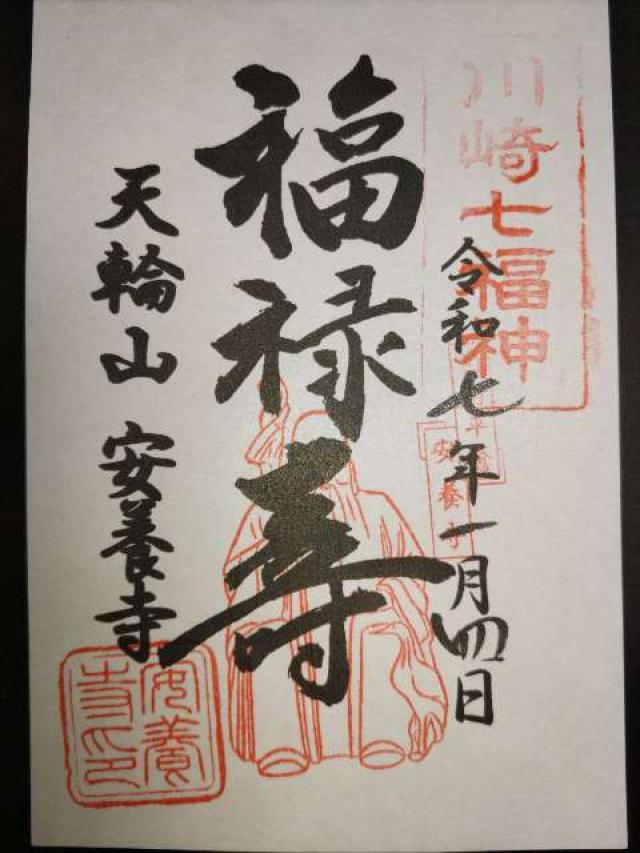 川崎七福神
令和七年一月四日
安養寺
福禄寿
天輪山 安養寺
安養寺印